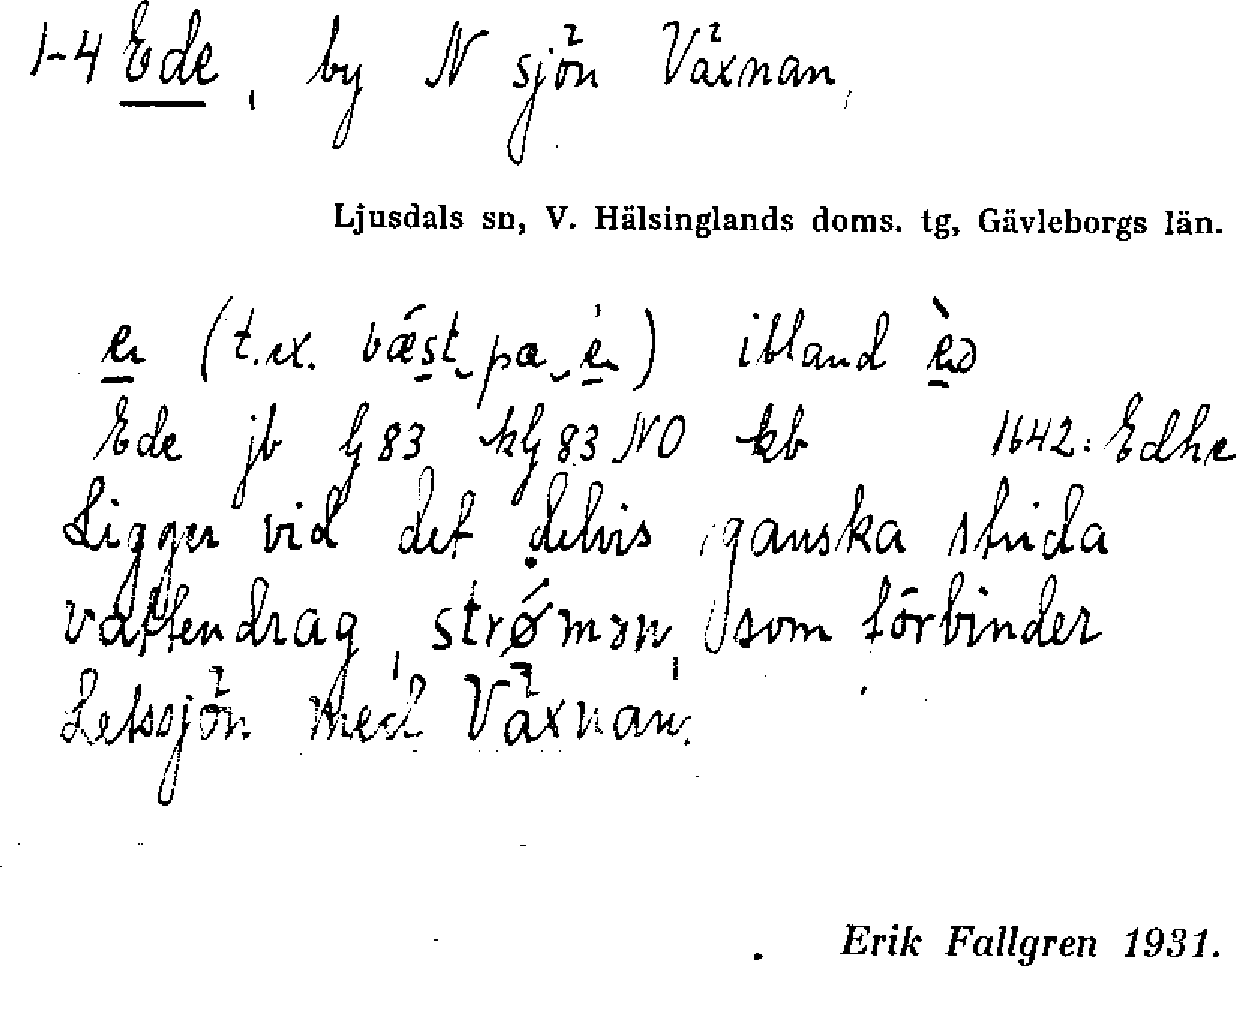 1-4 Ede, by N sjön Växnan,
Ljusdals sn, V. Hälsinglands doms. tg, Gävleborgs län.
e (t.ex. væst pa é) ibland èə
Ede jb G 83 kG 83 NO kb 1642: Edhe
Ligger vid det delvis ganska strida
vattendrag, strǿmən, som förbinder
Letssjön med Växnan.
Erik Fallgren 1931.